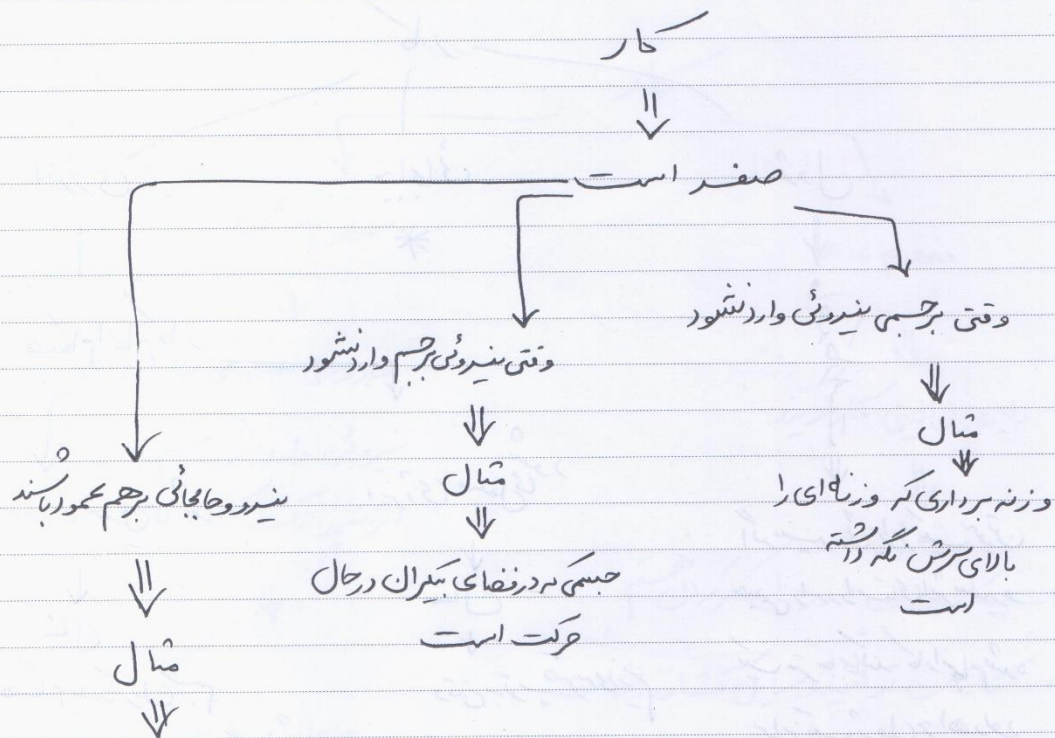 کار
صفر است
وقتی برجسمی نیروئی وارد نشود
مثال
وزنه برداری که وزنه ای را
بالای سرش نگه داشته
است
وقتی نیروئی برجسم وارد نشود
مثال
جسمی که در فضای بیکران در حال
حرکت است
نیرو و جابجائی برهم عمود باشند
مثال